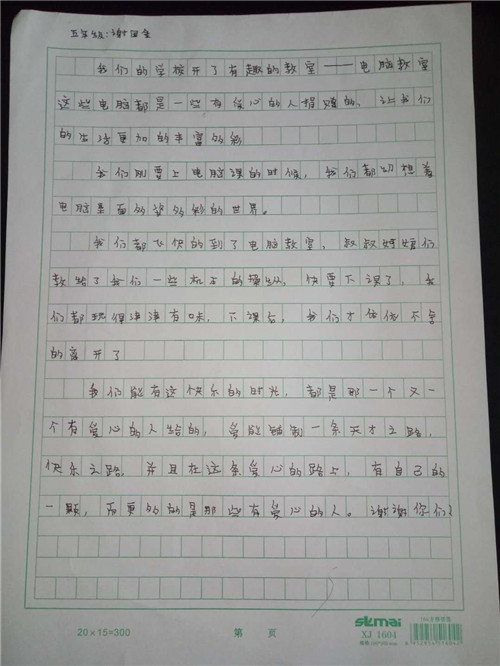 五年级:谢田金
我们的学校开了有趣的教室——电脑教室
这些电脑都是一些有爱心的人捐赠的，让我们
的生活更加的丰富多彩
我们刚要上电脑课的时候，我们都幻想着
电脑里面多姿多彩的世界。
我们都飞快的到了电脑教室，叔叔姐姐们
教给了我们一些机子的操纵，快要下课了，我
们都玩得津津有味，下课后，我们才依依不舍
的离开了
我们能有这快乐的时光，都是那一个又一
个有爱心的人给的，爱能铺制一条天才之路，
快乐之路，并且在这条爱心的路上，有自己的
一颗，而更多的是那些有爱心的人。谢谢你们
20×15=300
第 页
skmai
XJ 1604